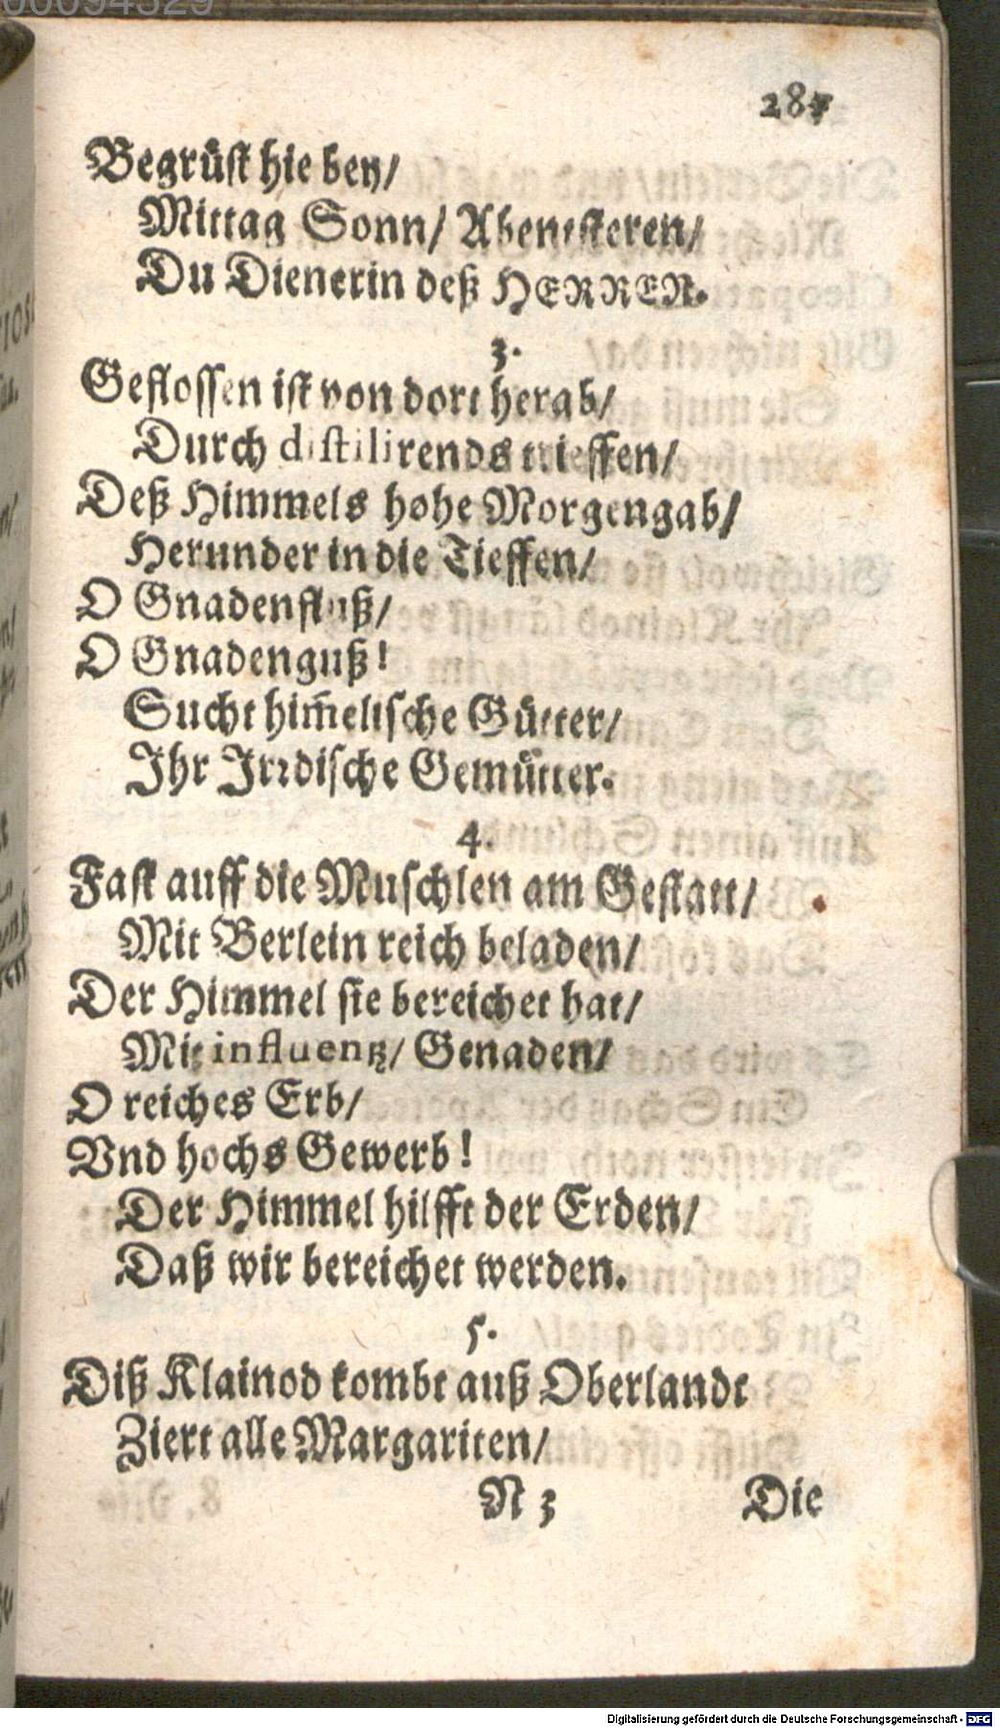 00094329
287
Begrüſt hie bey/
Mittag Sonn/ Abentſteren/
Du Dienerin deß HERREN.
3.
Gefloſſen iſt von dort herab/
Durch diſtilirends trieffen/
Deß Himmels hohe Morgengab/
Herunder in die Tieffen/
O Gnadenfluß/
O Gnadenguß!
Sucht him̃eliſche Gütter/
Ihr Irꝛdiſche Gemütter.
4.
Faſt auff die Muſchlen am Geſtatt/
Mit Berlein reich beladen/
Der Himmel ſie bereichet hat/
Mit influentz/ Genaden/
O reiches Erb/
Vnd hochs Gewerb!
Der Himmel hilfft der Erden/
Daß wir bereichet werden.
5.
Diß Klainod kombt auß Oberlandt
Ziert alle Margariten/
N 3 Die
Digitalisierung gefördert durch die Deutsche Forschungsgemeinschaft - DFG